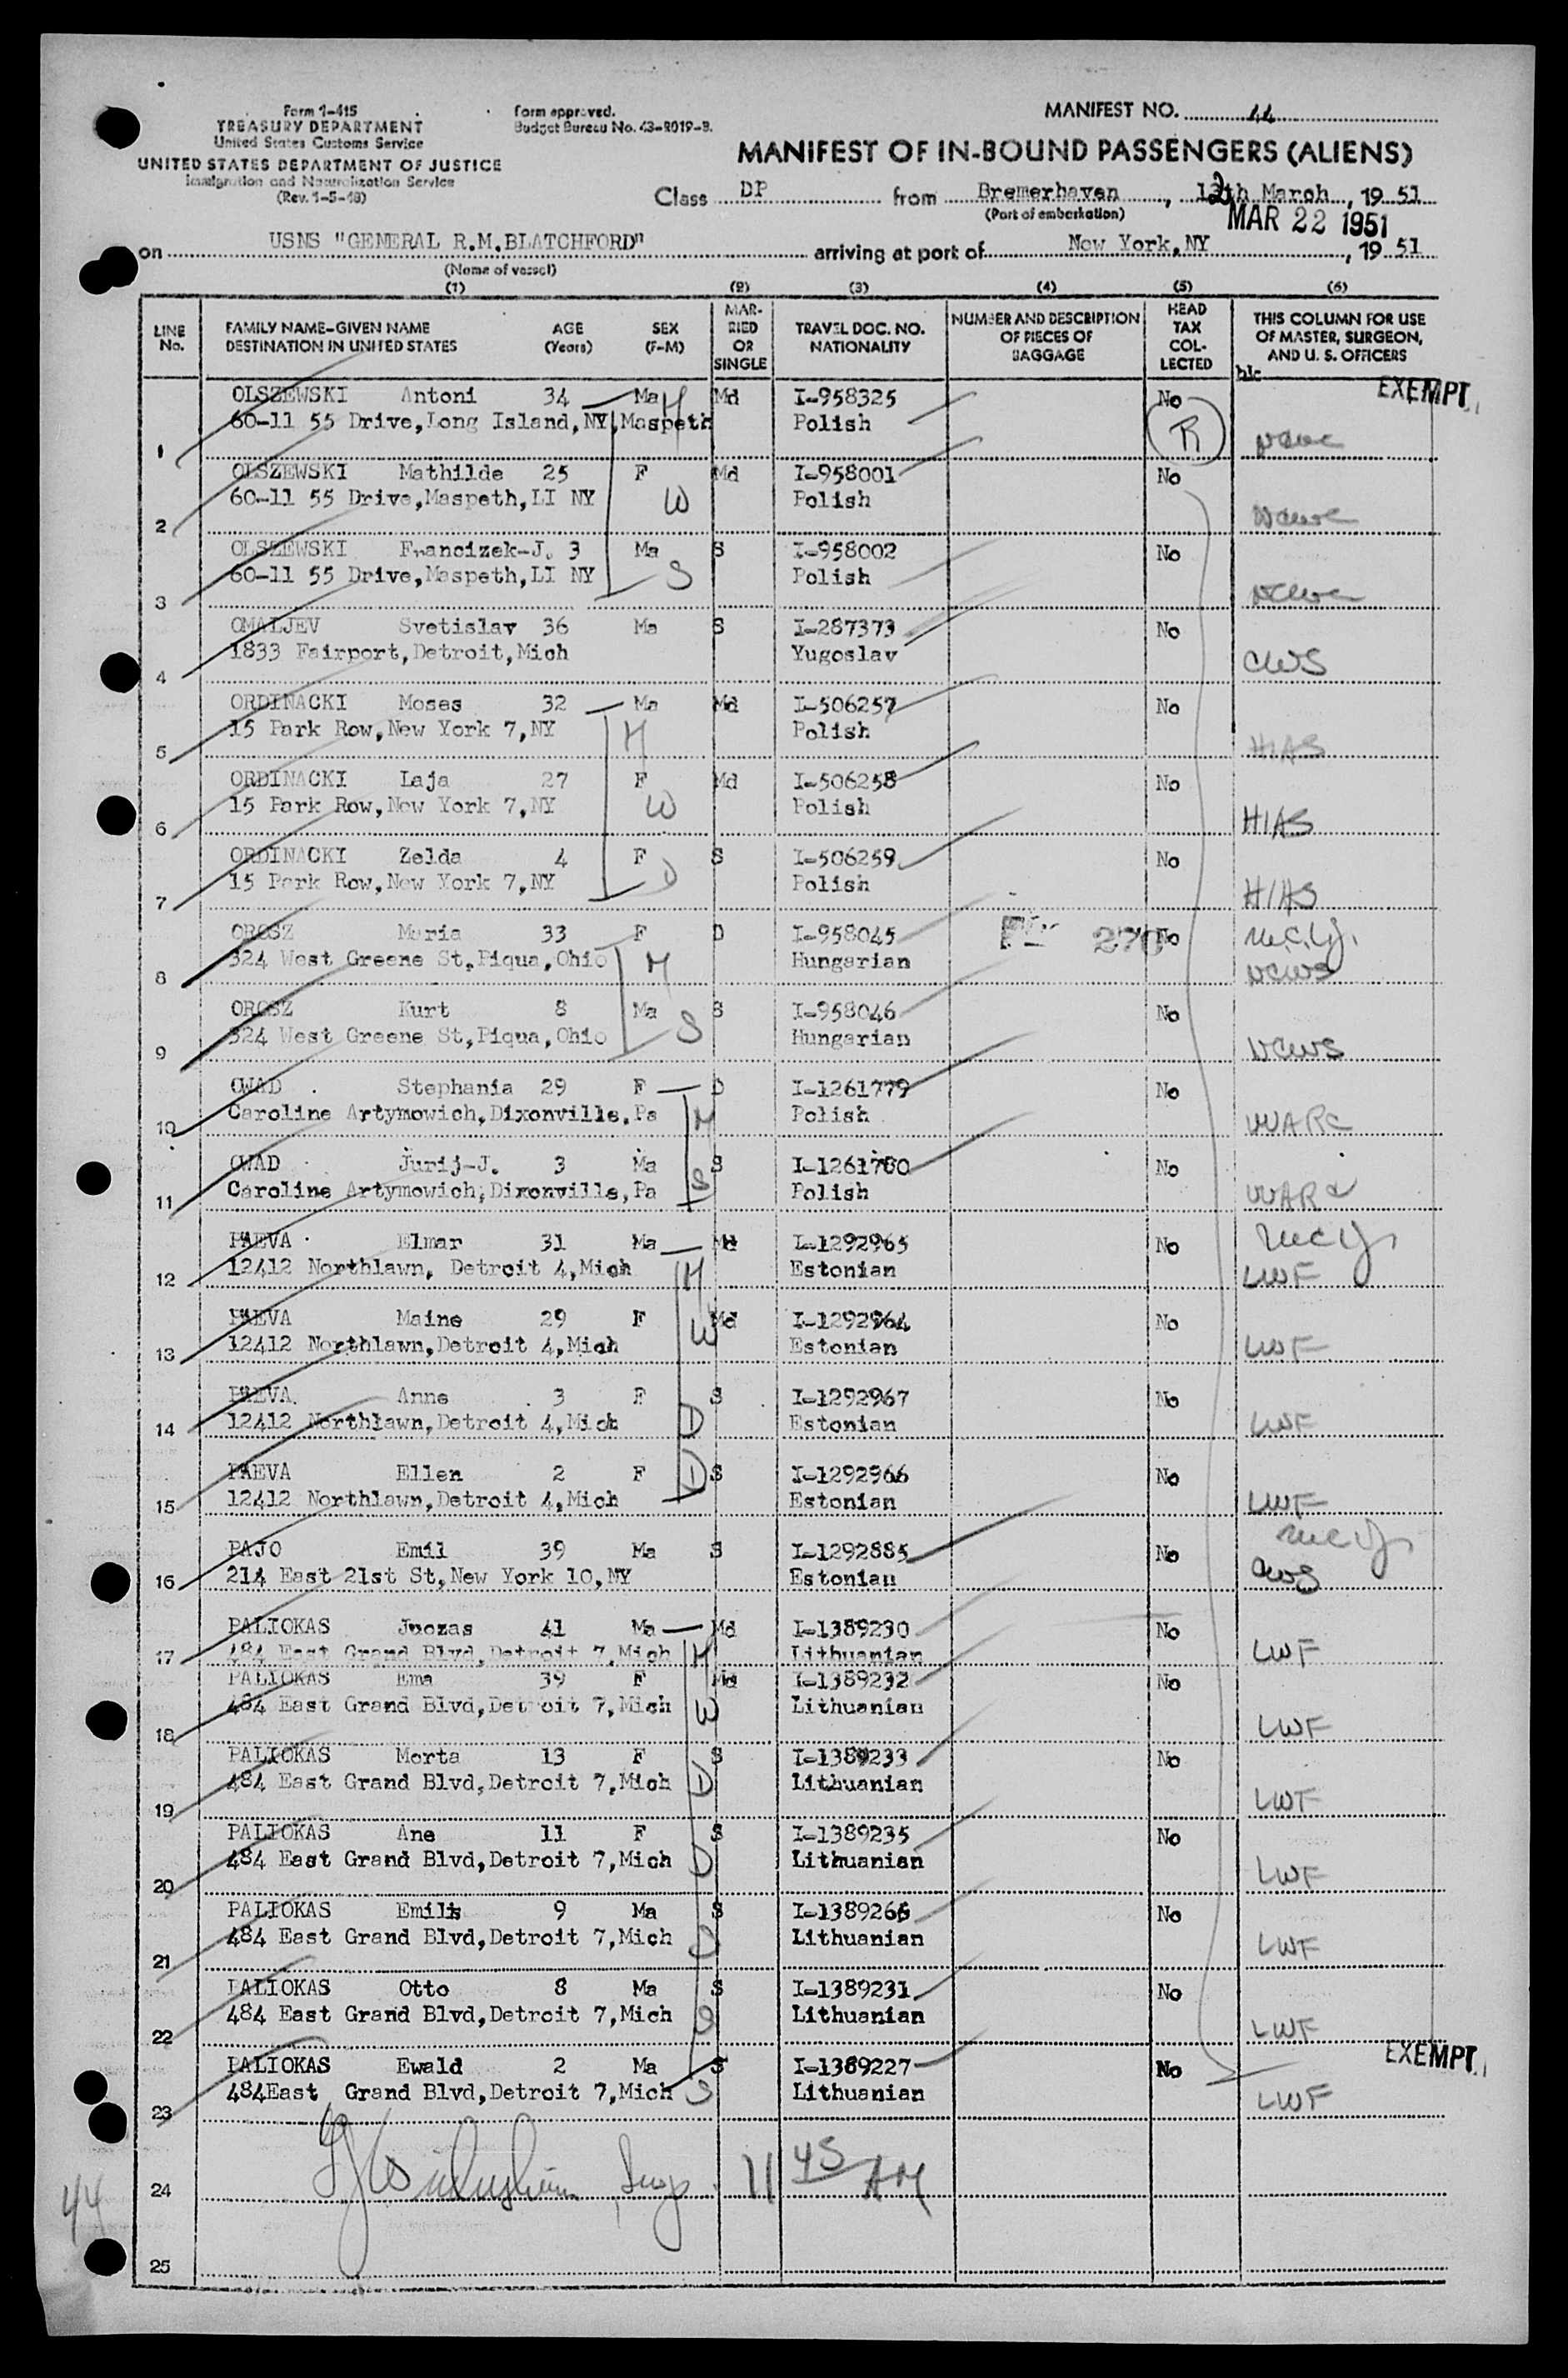 Form 1-415
TREASURY DEPARTMENT
United States Customs Service
UNITED STATES DEPARTMENT OF JUSTICE
Immigration and Naturalization Service
(Rev. 1-5-48)
Form approved.
Budget Bureau No. 43-R019-B.
MANIFEST NO. 44
MANIFEST OF IN-BOUND PASSENGERS (ALIENS)
Class DP from Bremerhaven, 12th March, 19 51
(Port of embarkation)
MAR 22 1951
on USNS "GENERAL R.M.BLATCHFORD" arriving at port of New York,NY, 19 51
(Name of vessel)
(1) (2) (3) (4) (5) (6)
LINE No. FAMILY NAME-GIVEN NAME DESTINATION IN UNITED STATES AGE (Years) SEX (F-M) MARRIED OR SINGLE TRAVEL DOC. NO. NATIONALITY NUMBER AND DESCRIPTION OF PIECES OF BAGGAGE HEAD TAX COLLECTED THIS COLUMN FOR USE OF MASTER, SURGEON, AND U. S. OFFICERS
EXEMPT
OLSZEWSKI Antoni 34 Ma H Md I-958325 No
1 60-11 55 Drive,Long Island,NY,Maspeth Polish R NCWC
OLSZEWSKI Mathilde 25 F Md I-958001 No
2 60-11 55 Drive,Maspeth,LI NY W Polish NCWC
OLSZEWSKI Francizek-J. 3 Ma S I-958002 No
3 60-11 55 Drive,Maspeth,LI NY S Polish NCWC
OMALJEV Svetislav 36 Ma S I-287373 No
4 1833 Fairport,Detroit,Mich Yugoslav CWS
ORDINACKI Moses 32 Ma Md I-506257 No
5 15 Park Row,New York 7,NY H Polish HIAS
ORDINACKI Laja 27 F Md I-506258 No
6 15 Park Row,New York 7,NY W Polish HIAS
ORDINACKI Zelda 4 F S I-506259 No
7 15 Park Row,New York 7,NY D Polish HIAS
OROSZ Maria 33 F D I-958045 270 No
8 324 West Greene St,Piqua,Ohio M Hungarian NCWS
OROSZ Kurt 8 Ma S I-958046 No
9 324 West Greene St,Piqua,Ohio S Hungarian NCWS
OWAD Stephania 29 F D I-1261779 No
10 Caroline Artymowich,Dixonville,Pa M Polish UUARC
OWAD Jurij-J. 3 Ma S I-1261780 No
11 Caroline Artymowich,Dixonville,Pa S Polish UUARC
PAEVA Elmar 31 Ma Md I-1292965 No
12 12412 Northlawn, Detroit 4,Mich H Estonian LWF
PAEVA Maine 29 F Md I-1292964 No
13 12412 Northlawn,Detroit 4,Mich W Estonian LWF
PAEVA Anne 3 F S I-1292967 No
14 12412 Northlawn,Detroit 4,Mich D Estonian LWF
PAEVA Ellen 2 F D S I-1292966 No
15 12412 Northlawn,Detroit 4,Mich Estonian LWF
PAJO Emil 39 Ma S I-1292885 No
16 214 East 21st St,New York 10,NY Estonian CWS
PALIOKAS Juozas 41 Ma Md I-1389230 No
17 484 East Grand Blvd,Detroit 7,Mich H Lithuanian LWF
PALIOKAS Ema 39 F Md I-1389232 No
18 484 East Grand Blvd,Detroit 7,Mich W Lithuanian LWF
PALIOKAS Morta 13 F S I-1389233 No
19 484 East Grand Blvd,Detroit 7,Mich D Lithuanian LWF
PALIOKAS Ane 11 F S I-1389235 No
20 484 East Grand Blvd,Detroit 7,Mich D Lithuanian LWF
PALIOKAS Emilis 9 Ma S I-1389266 No
21 484 East Grand Blvd,Detroit 7,Mich Lithuanian LWF
PALIOKAS Otto 8 Ma S I-1389231 No
22 484 East Grand Blvd,Detroit 7,Mich S Lithuanian LWF
EXEMPT
PALIOKAS Ewald 2 Ma S I-1389227 No
23 484East Grand Blvd,Detroit 7,Mich S Lithuanian LWF
24 11 45 AM
44
25